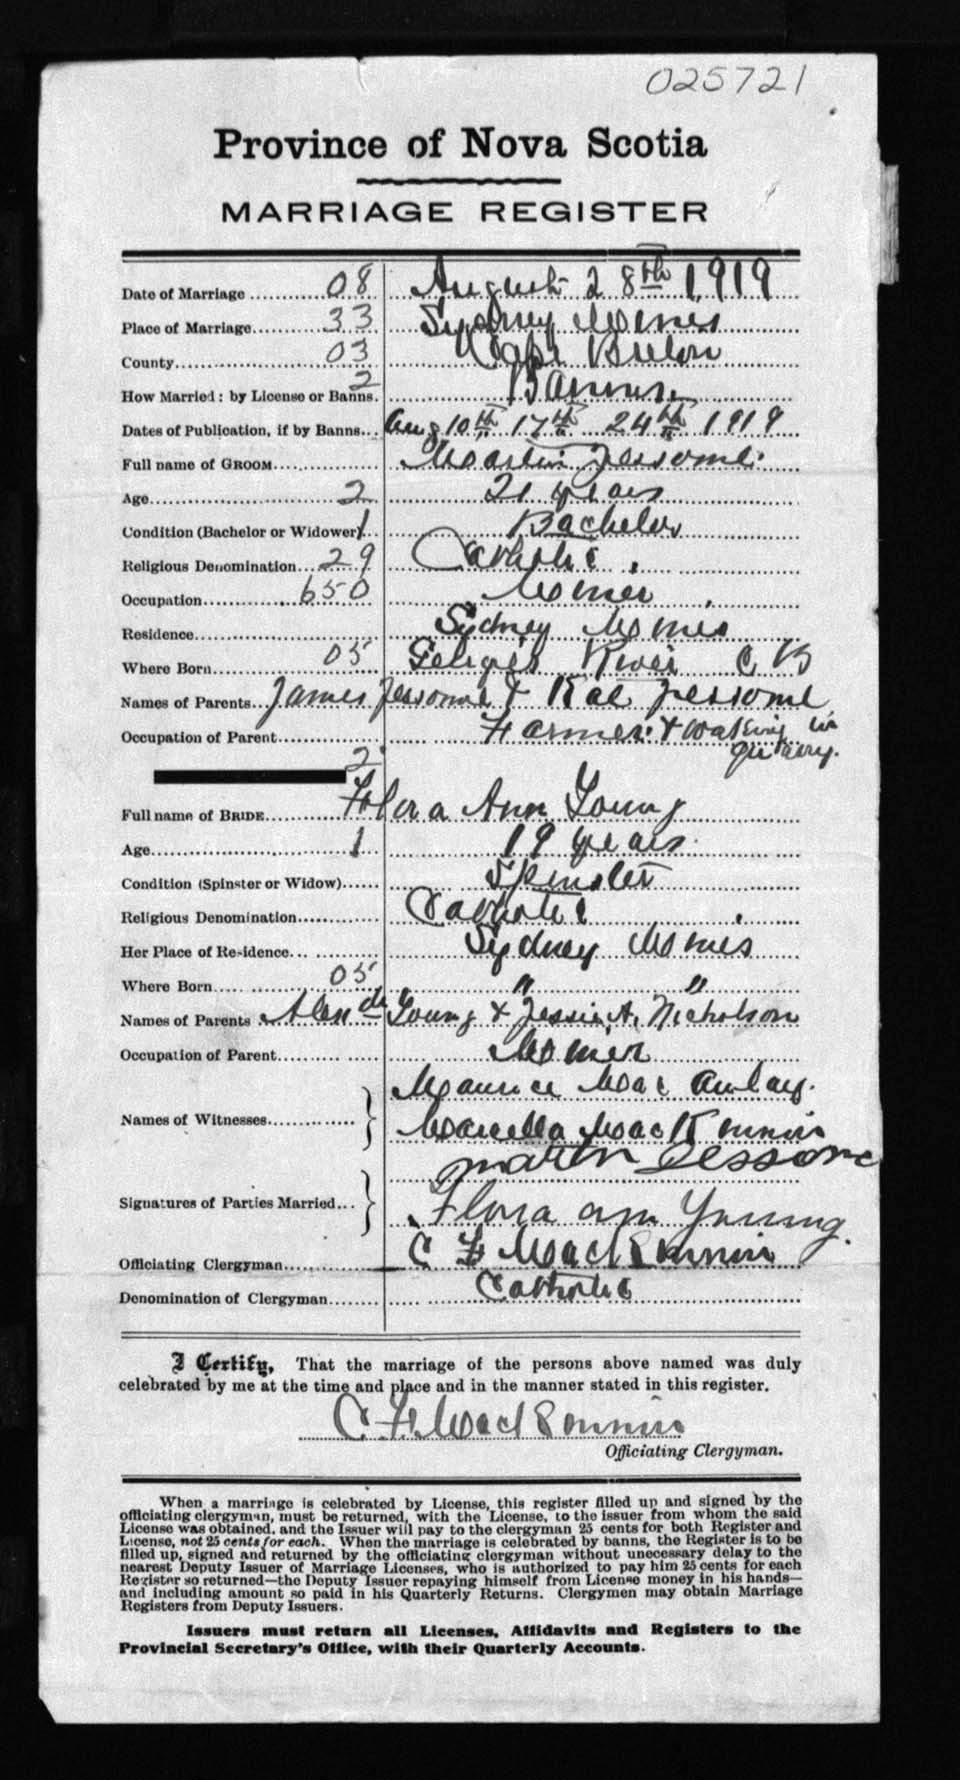 025721
Province of Nova Scotia
MARRIAGE REGISTER
Date of Marriage 08 August 28th 1919
Place of Marriage 33 Sydney Mines
County 03 Cape Breton
How Married: by License or Banns. 2 Banns
Dates of Publication, if by Banns Aug 10th 17th 24th 1919
Full name of GROOM Martin Jessome
Age 2 21 years
Condition (Bachelor or Widower) 1 Bachelor
Religious Denomination 29 Catholic
Occupation 650 Miner
Residence Sydney Mines
Where Born 05 River C B
Names of Parents James Jessome & Kate Jessome
Occupation of Parent Farmer & working in
quarry.
2
Full name of BRIDE Flora Ann Young
Age 1 19 years
Condition (Spinster or Widow) Spinster
Religious Denomination Catholic
Her Place of Residence Sydney Mines
Where Born 05 " "
Names of Parents Alexdr Young & Jessie A. Nicholson
Occupation of Parent Miner
Maurice MacAulay.
Names of Witnesses Marcella MacKinnon
Martin Jessome
Signatures of Parties Married Flora ann Young.
Officiating Clergyman C F MacKinnon
Denomination of Clergyman Catholic
I Certify, That the marriage of the persons above named was duly
celebrated by me at the time and place and in the manner stated in this register.
C F MacKinnon
Officiating Clergyman.
When a marriage is celebrated by License, this register filled up and signed by the
officiating clergyman, must be returned, with the License, to the issuer from whom the said
License was obtained, and the Issuer will pay to the clergyman 25 cents for both Register and
License, not 25 cents for each. When the marriage is celebrated by banns, the Register is to be
filled up, signed and returned by the officiating clergyman without unnecessary delay to the
nearest Deputy Issuer of Marriage Licenses, who is authorized to pay him 25 cents for each
Register so returned—the Deputy Issuer repaying himself from License money in his hands—
and including amount so paid in his Quarterly Returns. Clergymen may obtain Marriage
Registers from Deputy Issuers.
Issuers must return all Licenses, Affidavits and Registers to the
Provincial Secretary's Office, with their Quarterly Accounts.